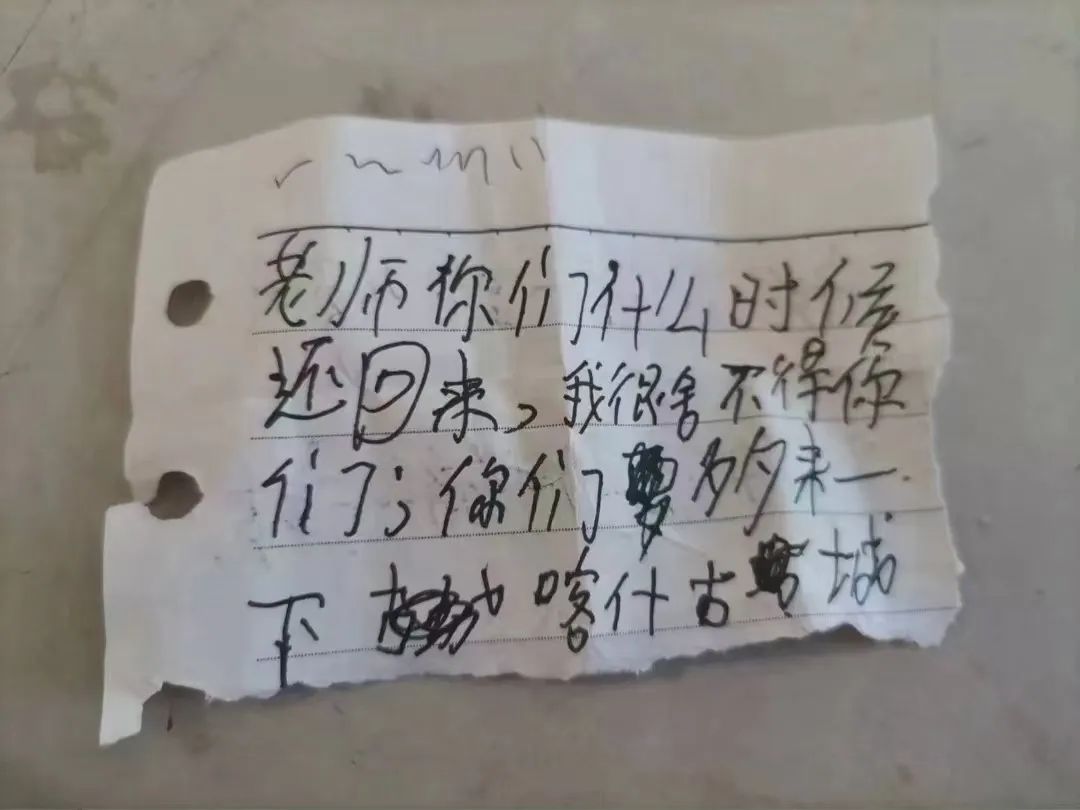 老师你们什么时候
还回来，我很舍不得你
们了；你们要多多来一
下 喀什古城